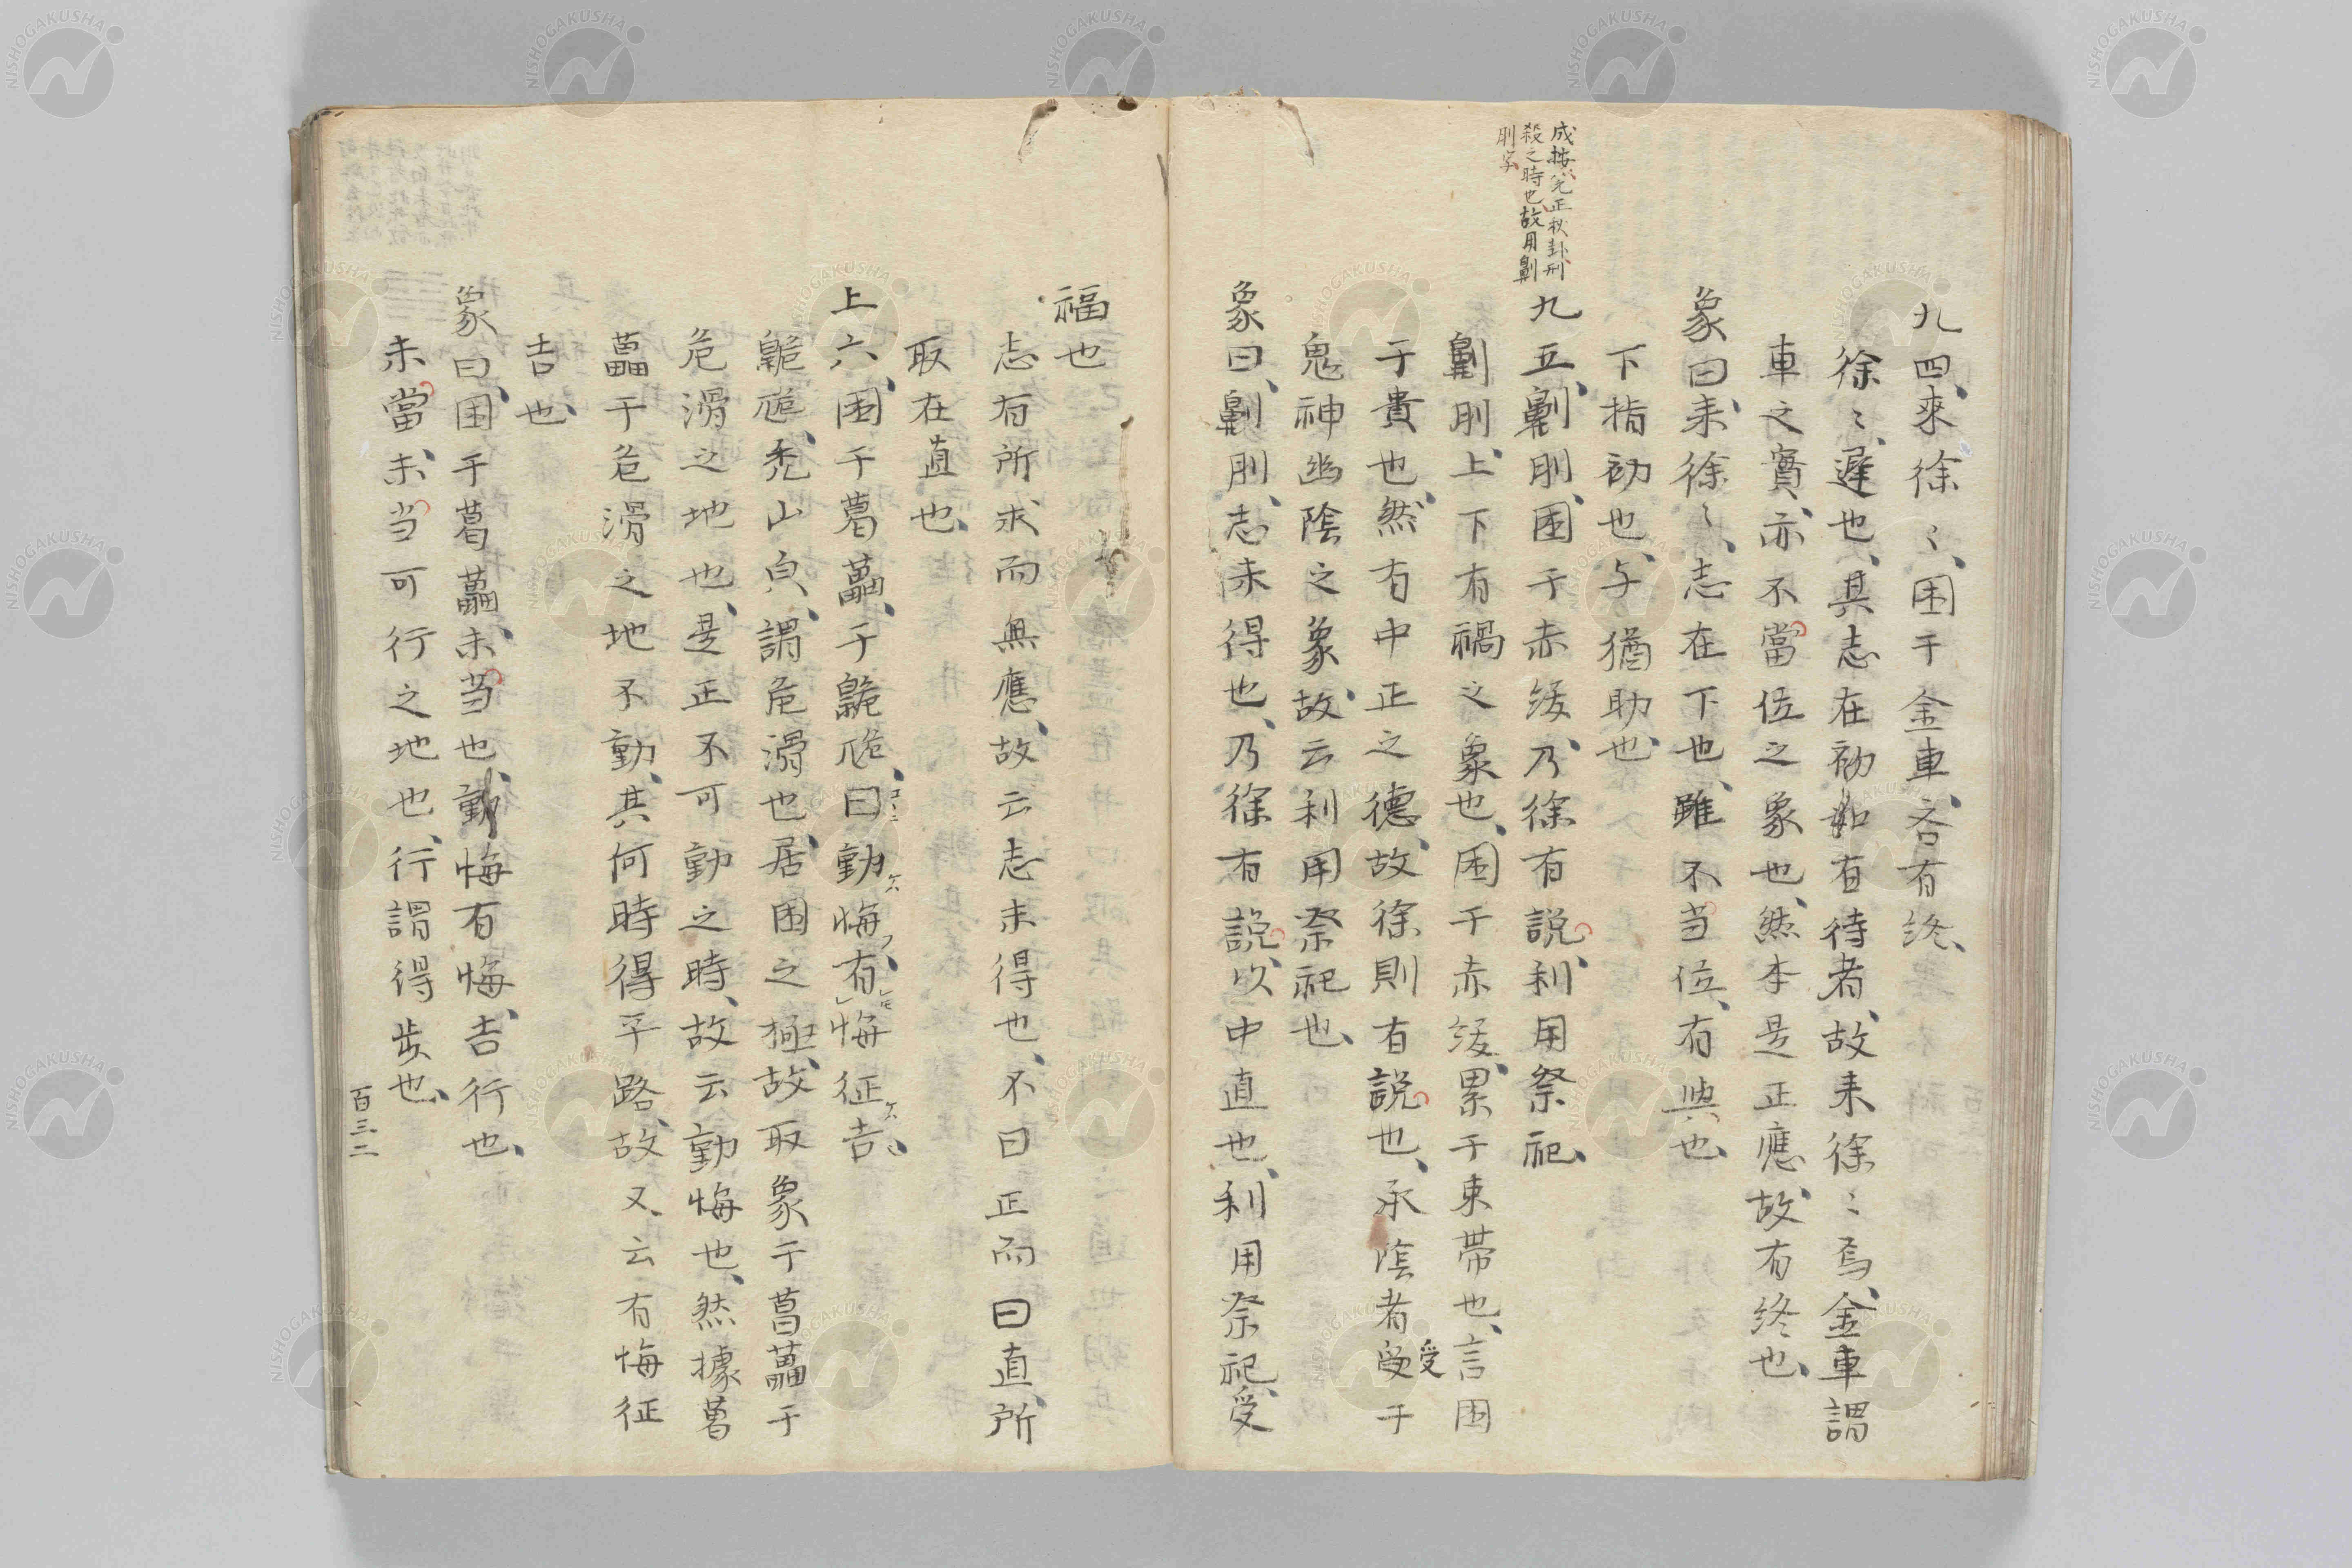 九四、來徐〻、困于金車、吝有終、
徐〻、遲也、其志在初如有待者、故耒徐〻焉、金車謂
車之實、亦不當位之象也、然本是正應、故有終也、
象曰、耒徐〻、志在下也、雖不当位、有與也、
下指初也、与猶助也、
成按、兌正秋卦、刑
殺之時也、故用劓
刖字
九五、劓刖、困于赤紱、乃徐有説、利用祭祀、
劓刖上下有禍之象也、困于赤紱、累于束帯也、言困
于貴也、然有中正之德、故徐則有説也、承陰者受于
受
鬼神幽陰之象、故云利用祭祀也、
象曰、劓刖、志未得也、乃徐有説、以中直也、利用祭祀、受
福也
志有所求而無應、故云志未得也、不曰正而曰直、所
取在直也、
上六、困于葛藟、于臲卼、曰動悔、有悔征吉、
臲卼、禿山皃、謂危滑也、居困之極、故取象于葛藟于
危滑之地也、是正不可動之時、故云動悔也、然據葛
藟于危滑之地不動、其何時得平路、故又云有悔征
吉也、
象曰、困于葛藟、未当也、動悔有悔、吉行也、
未當、未当可行之地也、行謂得步也、
百三二